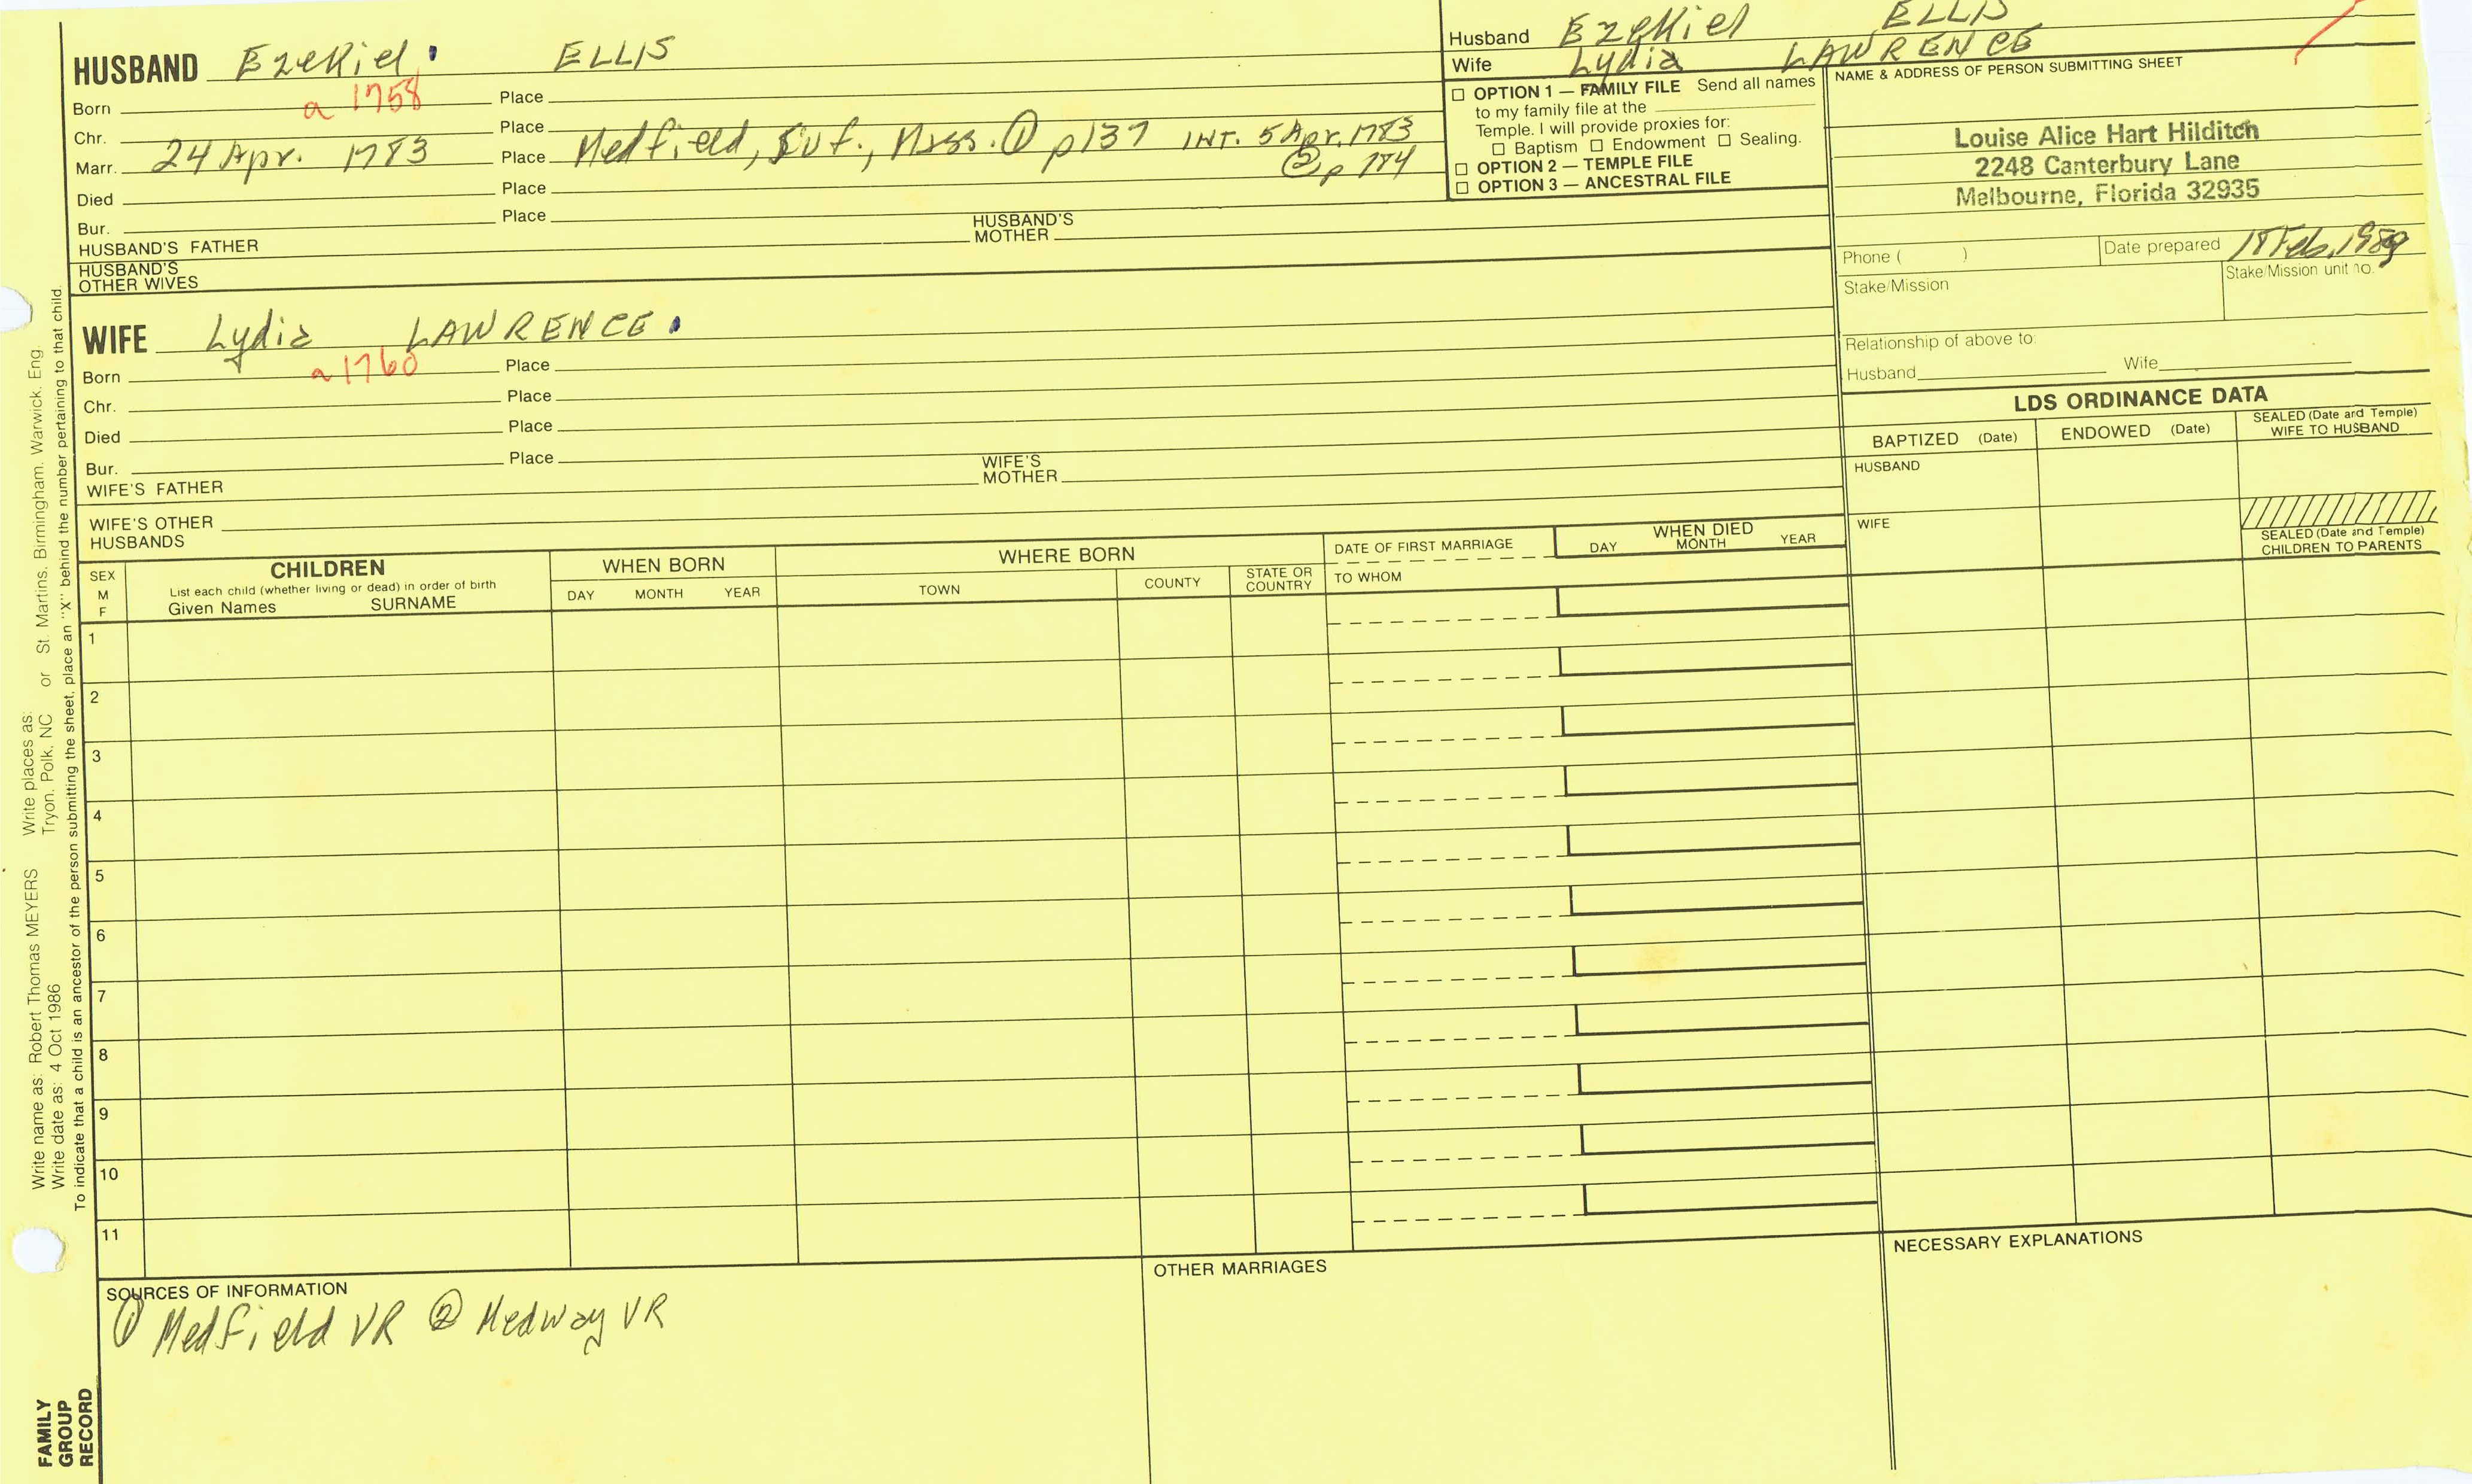 HUSBAND Ezekiel ELLIS
Born a 1758 Place
Chr. Place
Marr. 24 Apr. 1783 Place Medfield, Suf., Mass. ① p137 INT. 5 Apr. 1783
② p 184
Died Place
Bur. Place
HUSBAND'S FATHER HUSBAND'S MOTHER
HUSBAND'S OTHER WIVES
Husband Ezekiel ELLIS
Wife Lydia LAWRENCE
☐ OPTION 1 — FAMILY FILE Send all names
to my family file at the
Temple. I will provide proxies for:
☐ Baptism ☐ Endowment ☐ Sealing.
☐ OPTION 2 — TEMPLE FILE
☐ OPTION 3 — ANCESTRAL FILE
NAME & ADDRESS OF PERSON SUBMITTING SHEET
Louise Alice Hart Hilditch
2248 Canterbury Lane
Melbourne, Florida 32935
Phone ( ) Date prepared 18 Feb. 1989
Stake/Mission Stake/Mission unit no.
Relationship of above to:
Husband Wife
WIFE Lydia LAWRENCE.
Born a 1760 Place
Chr. Place
Died Place
Bur. Place
WIFE'S FATHER WIFE'S MOTHER
WIFE'S OTHER HUSBANDS
LDS ORDINANCE DATA
BAPTIZED (Date) ENDOWED (Date) SEALED (Date and Temple) WIFE TO HUSBAND
HUSBAND
WIFE
SEALED (Date and Temple)
CHILDREN TO PARENTS
SEX
M
F
CHILDREN
List each child (whether living or dead) in order of birth
Given Names SURNAME
WHEN BORN
DAY MONTH YEAR
WHERE BORN
TOWN COUNTY STATE OR COUNTRY
DATE OF FIRST MARRIAGE
TO WHOM
WHEN DIED
DAY MONTH YEAR
1
2
3
4
5
6
7
8
9
10
11
SOURCES OF INFORMATION
① Medfield VR ② Medway VR
OTHER MARRIAGES
NECESSARY EXPLANATIONS
Write name as: Robert Thomas MEYERS Write places as:
Write date as: 4 Oct 1986 Tryon, Polk, NC or St. Martins, Birmingham, Warwick, Eng.
To indicate that a child is an ancestor of the person submitting the sheet, place an "X" behind the number pertaining to that child.
FAMILY
GROUP
RECORD